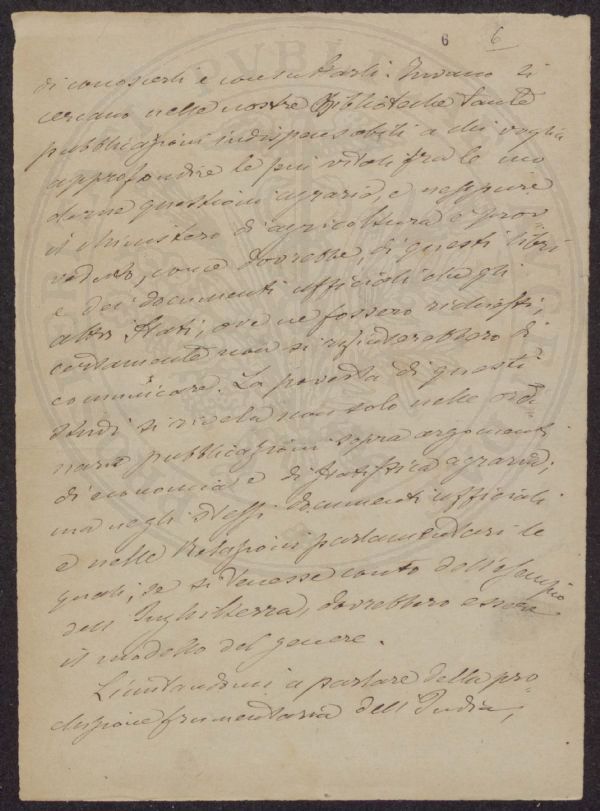 6 6
di conoscerli e consultarli. Invano si
cercano nelle nostre Biblioteche tante
pubblicazioni indispensabili a chi voglia
approfondire le più vitali fra le mo
derne questioni agrarie, e neppure
il Ministero di agricoltura è prov
veduto, come dovrebbe, di questi libri
e dei documenti ufficiali che gli
altri Stati, ove ne fossero richiesti,
certamente non si rifiuterebbero di
comunicare. La povertà di questi
studi si rivela non solo nelle ordi
narie pubblicazioni sopra argomenti
di economia e di statistica agraria;
ma negli stessi documenti ufficiali
e nelle Relazioni parlamentari le
quali, se si tenesse conto dell'esempio
dell'Inghilterra, dovrebbero essere
il modello del genere.
Limitandomi a parlare della pro
duzione frumentaria dell'India,